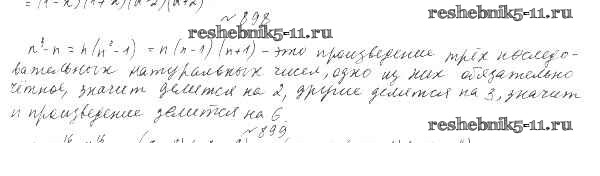 = (1-x)(1+x)(x-2)(x+2)
№ 898
reshebnik5-11.ru
n³-n = n(n²-1) = n(n-1)(n+1) - это произведение трёх последо-
вательных натуральных чисел, одно из них обязательно
чётное, значит делится на 2, другие делятся на 3, значит
и произведение делится на 6.
reshebnik5-11.ru
№ 899
reshebnik5-11.ru